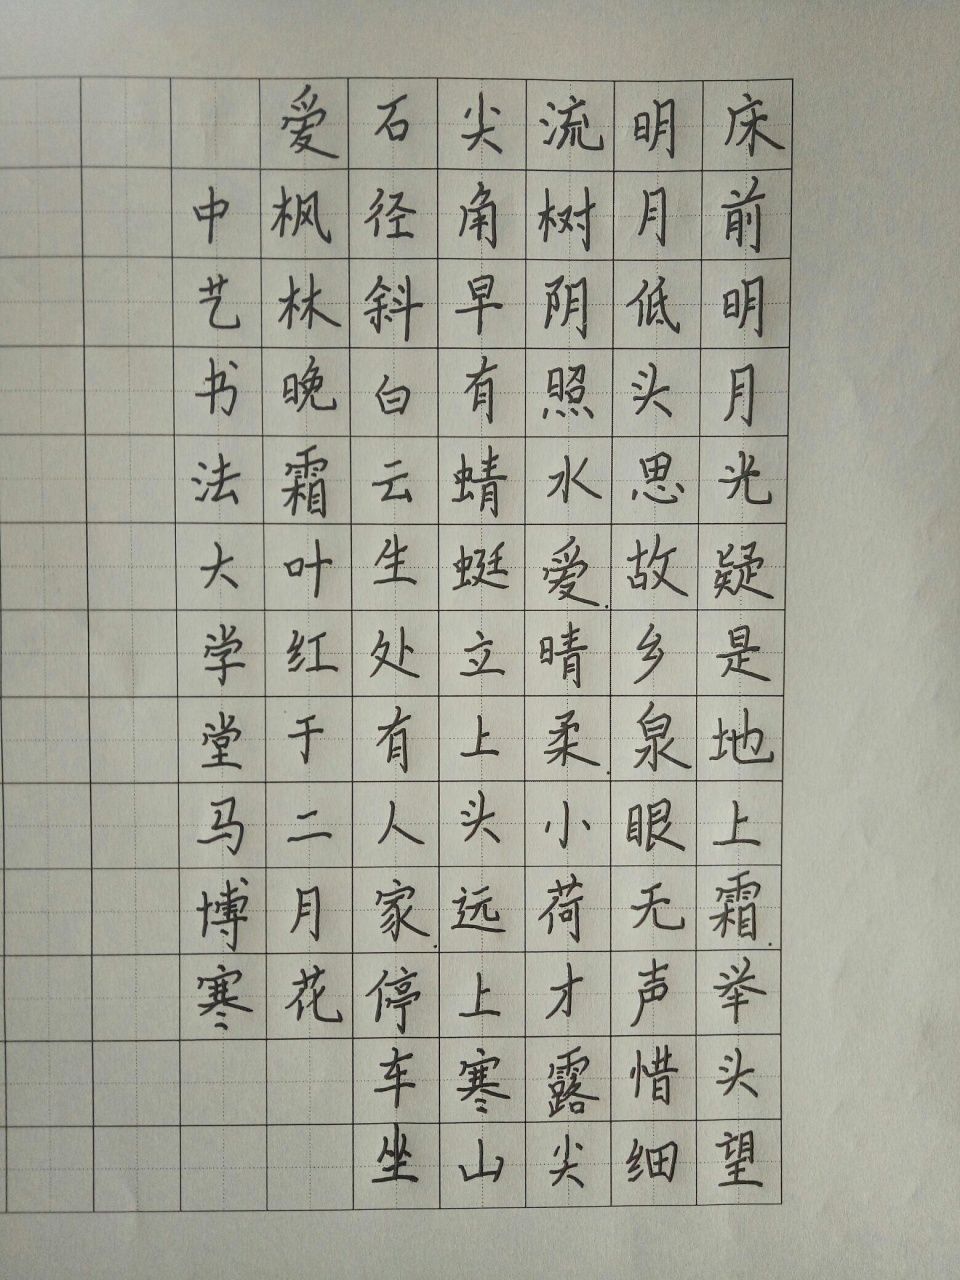 床前明月光疑是地上霜举头望
明月低头思故乡泉眼无声惜细
流树阴照水爱晴柔小荷才露尖
尖角早有蜻蜓立上头远上寒山
石径斜白云生处有人家停车坐
爱枫林晚霜叶红于二月花
中艺书法大学堂马博寒